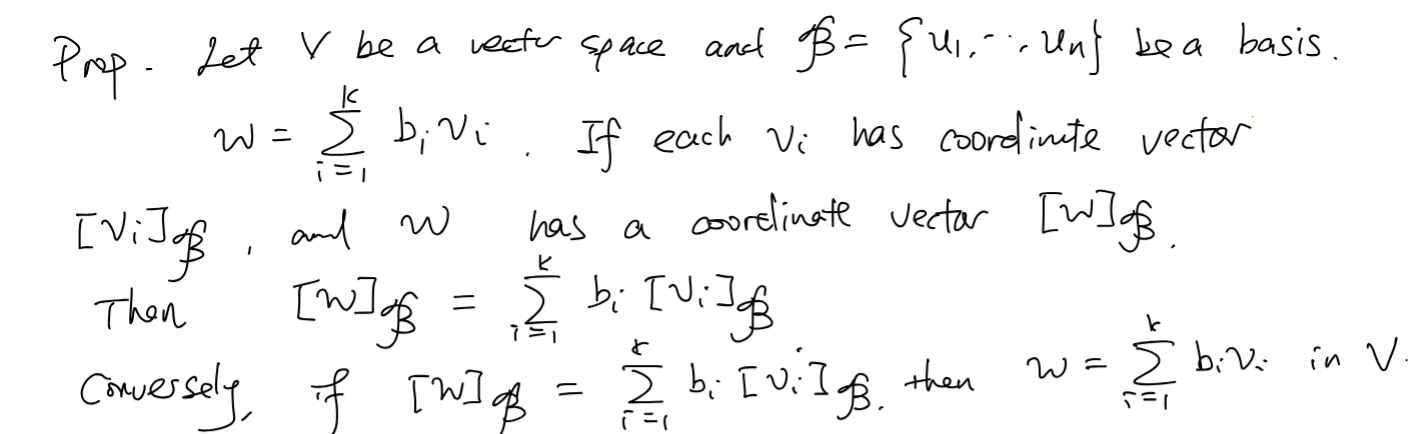 Prop. Let V be a vector space and β = {u₁, ..., uₙ} be a basis.
w = Σᵢ₌₁ᵏ bᵢvᵢ. If each vᵢ has coordinate vector
[vᵢ]β, and w has a coordinate vector [w]β.
Then [w]β = Σᵢ₌₁ᵏ bᵢ [vᵢ]β
Conversely, if [w]β = Σᵢ₌₁ᵏ bᵢ [vᵢ]β, then w = Σᵢ₌₁ᵏ bᵢvᵢ in V.